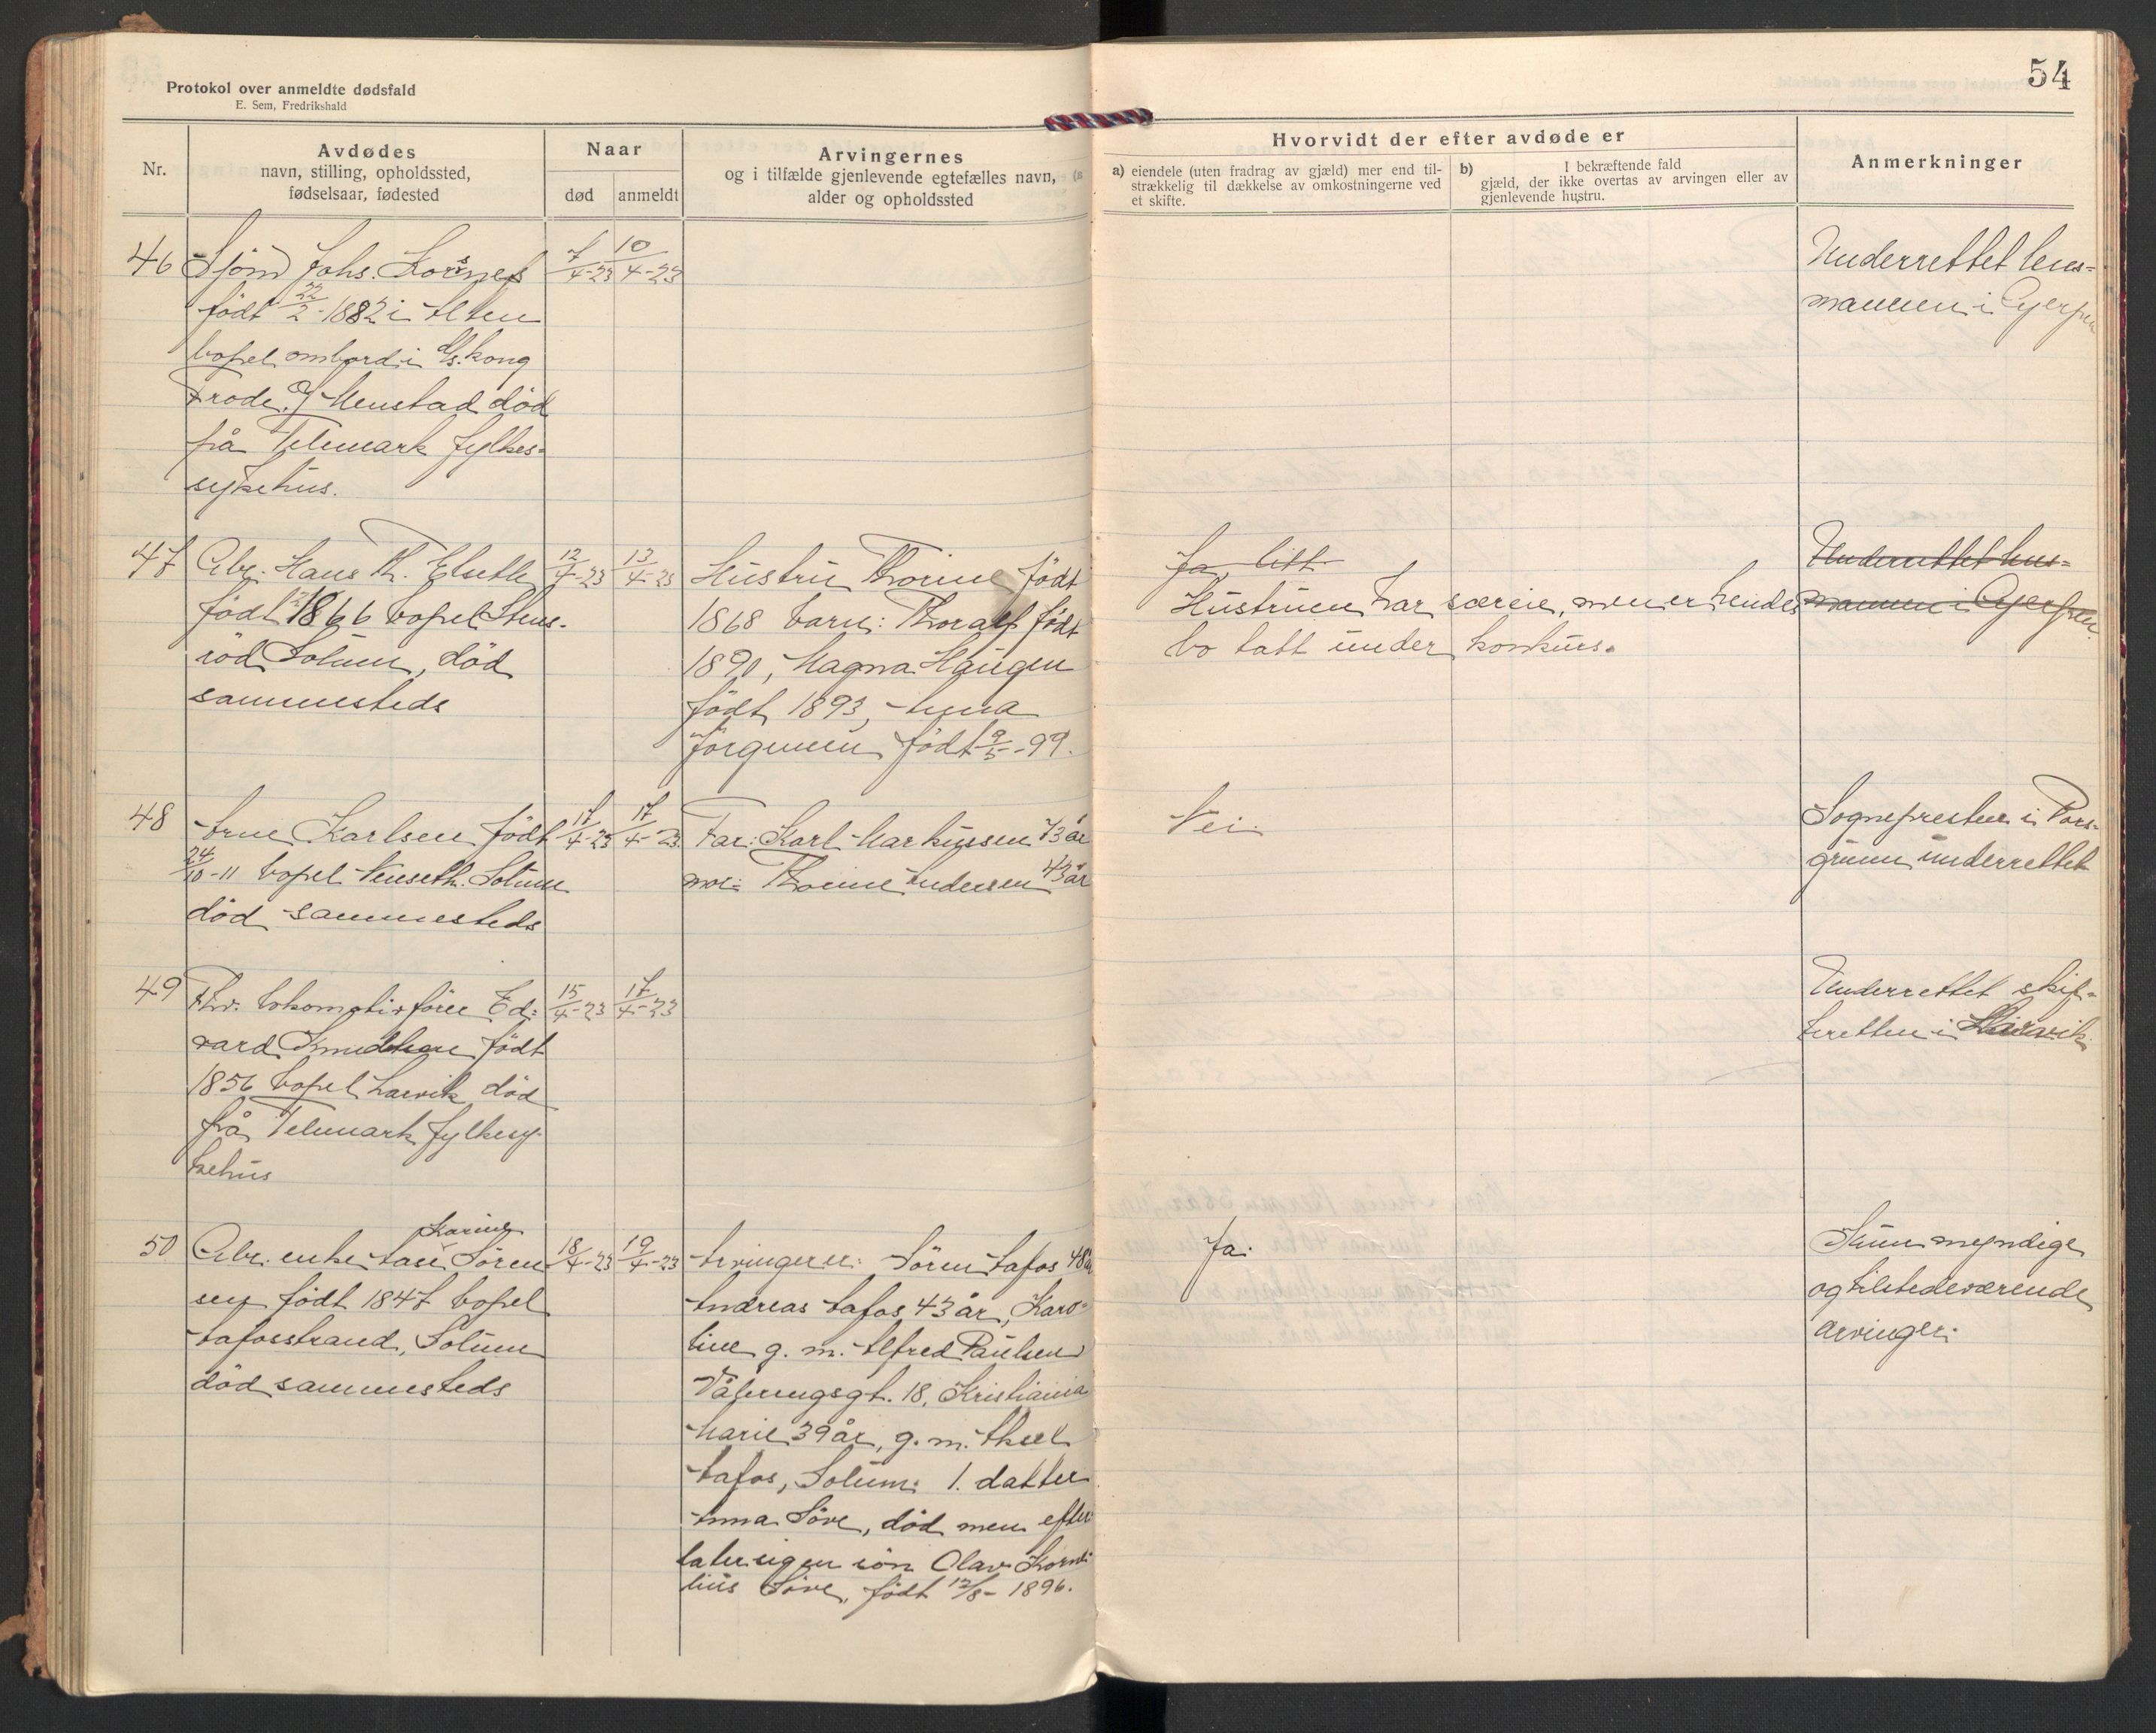 54
Protokol over anmeldte dødsfald
E. Sem, Fredrikshald
Nr.
Avdødes
navn, stilling, opholdssted,
fødselsaar, fødested
Naar
død
anmeldt
Arvingernes
og i tilfælde gjenlevende egtefælles navn,
alder og opholdssted
Hvorvidt der efter avdøde er
a) eiendele (uten fradrag av gjæld) mer end til-
strækkelig til dækkelse av omkostningerne ved
et skifte.
b) I bekræftende fald
gjæld, der ikke overtas av arvingen eller av
gjenlevende hustru.
Anmerkninger
46
Johs.
født 22/2-1882 i Alten
bopel ombord i D/s. Kong
Frode, Menstad død
på Telemark fylkes-
sykehus.
7/4-23
10/4-23
Underrettet lens-
mannen i Gjerpen
47
Arb. Hans Th. Elseth
født 1866 bopel Stens-
rød Solum, død
sammesteds
12/4-23
13/4-23
Hustru Thorine født
1868 barn: Thoralf født
1890, Magna Haugen
født 1893, Anna
Jørgensen født 9/5-99.
Ja, litt.
Hustruen har særeie, men er hendes
bo tatt under konkurs.
Underrettet lens-
mannen i Gjerpen
48
Arne Karlsen født
24/10-11 bopel Venseth. Solum
død sammesteds
17/4-23
17/4-23
Far: Karl Markussen 43 år
mor: Thorine Andersen 43 år
Nei.
Sognepresten i Pors-
grunn underrettet
49
Fhv. lokomotivfører Ed-
vard Knudsen født
1856 bopel Larvik død
på Telemark fylkesy-
kehus
15/4-23
17/4-23
Underrettet skif-
teretten i Larvik
50
Karine
Arb. enke Åse Søren-
sen født 1847 bopel
Åfosstrand, Solum
død sammesteds
18/4-23
19/4-23
Arvinger er: Søren Åfos 48 år
Andreas Åfos 43 år, Karo-
line g. m. Alfred Paulsen
Vålerengsgt. 18, Kristiania
Marie 39 år, g. m. Aksel
Åfos, Solum. 1. datter
Anna Söve, død men efter-
later sig en sön Olav Korne-
lius Söve, født 12/8-1896.
Ja.
Kun myndige
og tilstedeværende
arvinger.